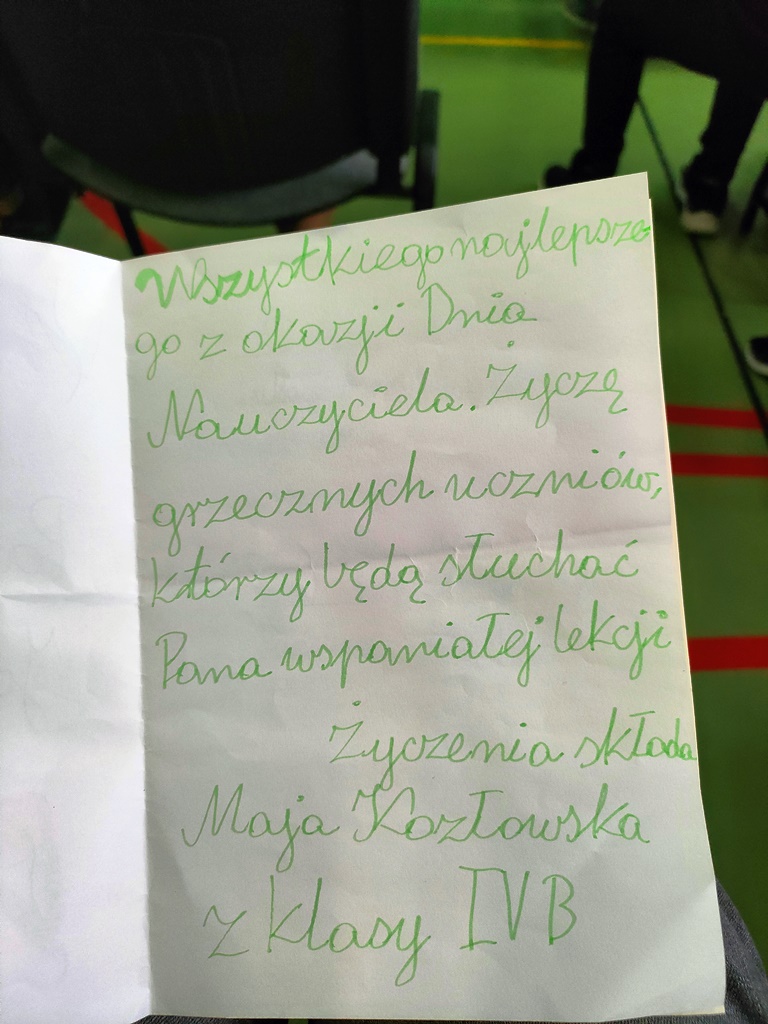 Wszystkiego najlepsze
go z okazji Dnia
Nauczyciela. Życzę
grzecznych uczniów,
którzy będą słuchać
Pana wspaniałej lekcji
Życzenia składa
Maja Kozłowska
z klasy IV B